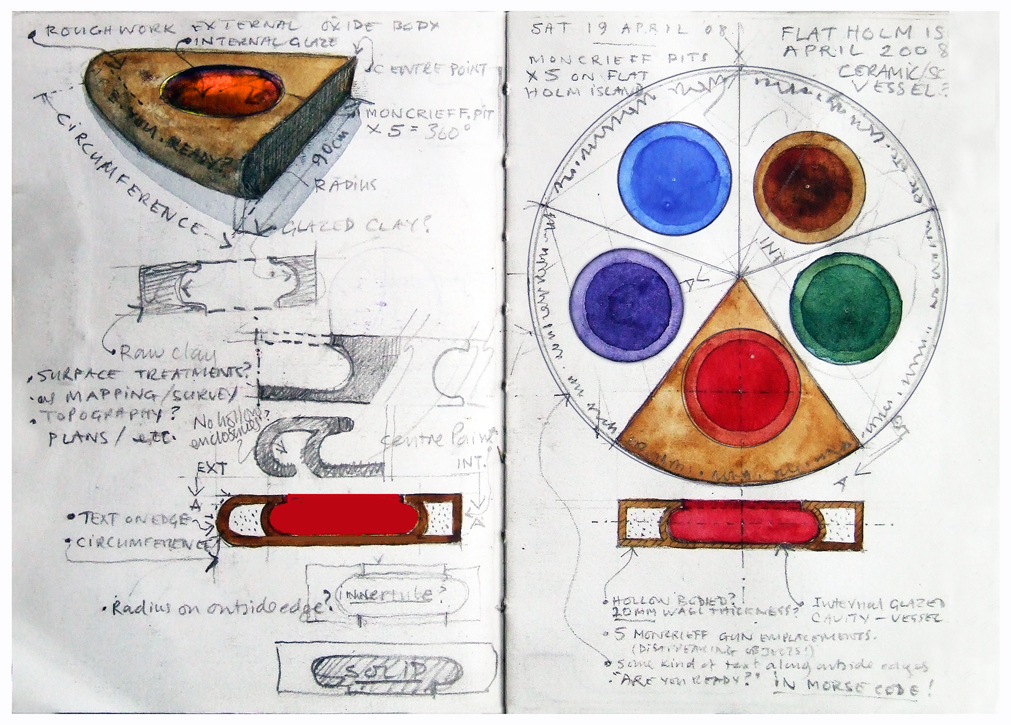 ROUGHWORK EXTERNAL OXIDE BODY
INTERNAL GLAZE
CENTRE POINT
MONCRIEFF. PIT
X 5 = 360°
90cm
RADIUS
YOU. READY?
CIRCUMFERENCE
GLAZED CLAY?
Raw clay
• SURFACE TREATMENTS?
• MAPPING/SURVEY
• TOPOGRAPHY?
PLANS/etc.
No hollow
enclosures?
?
Centre Point
INT.
EXT
A
A
• TEXT ON EDGE
• CIRCUMFERENCE
INNERTUBE?
• Radius on outside edge?
SOLID
SAT 19 APRIL 08.
FLAT HOLM IS
APRIL 2008
CERAMIC/SC
VESSEL?
MONCRIEFF PITS
X5 ON FLAT
HOLM ISLAND
INT
A
• HOLLOW BODIED?
20mm WALL THICKNESS?
Internal GLAZED
CAVITY - VESSEL
• 5 MONCRIEFF GUN EMPLACEMENTS.
(DISAPPEARING OBJECTS!)
• some kind of text along outside edges
• "ARE YOU READY?" IN MORSE CODE!